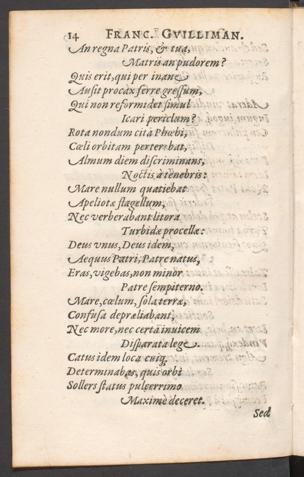 14 FRANC. GVILLIMAN.
An regna Patris, & tua,
Matris an pudorem?
Quis erit, qui per inane
Ausit procax ferre gressum,
Qui non reformidet simul
Icari periclum?
Rota nondum citâ Phœbi,
Cœli orbitam perterebat,
Almum diem discriminans,
Noctis à tenebris:
Mare nullum quatiebat
Apeliotæ flagellum,
Nec verberabant litora
Turbidæ procellæ:
Deus vnus, Deus idem,
Aequus Patri, Patre natus,
Eras, vigebas, non minor
Patre sempiterno.
Mare, cœlum, sola terræ,
Confusa depræliabant,
Nec more, nec certâ inuicem
Disparata lege.
Catus idem loca cuiq,
Determinabas, quis orbi
Sollers status pulcerrimo
Maximè deceret.
Sed